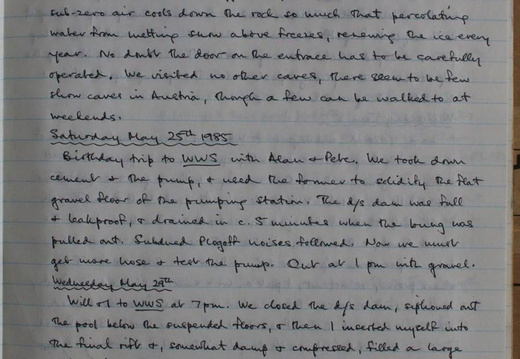 sub-zero air cools down the rock so much that percolating
water from melting snow above freezes, renewing the ice every
year. No doubt the door on the entrace has to be carefully
operated. We visited no other caves, there seem to be few
show caves in Austria, though a few can be walked to at
weekends.
Saturday May 25th 1985
Birthday trip to WWS with Alan & Pete. We took down
cement & the pump, & used the former to solidify the flat
gravel floor of the pumping station. The d/s dam was full
& leakproof, & drained in c. 5 minutes when the bung was
pulled out. Subdued Plogoff noises followed. Now we must
get more hose & test the pump. Out at 1 pm with gravel.
Wednesday May 29th
Will & I to WWS at 7pm. We closed the d/s dam, siphoned out
the pool below the suspended floors, & then I inserted myself into
the final rift &, somewhat damp & compressed, filled a large